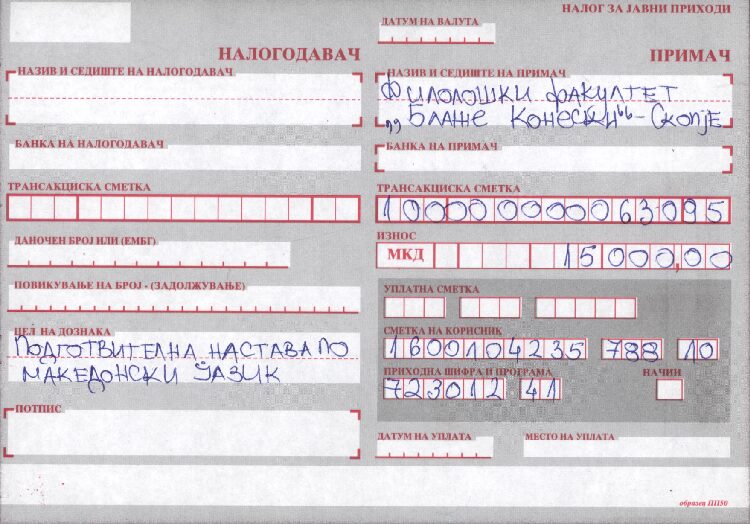 НАЛОГ ЗА ЈАВНИ ПРИХОДИ
ДАТУМ НА ВАЛУТА
НАЛОГОДАВАЧ
ПРИМАЧ
НАЗИВ И СЕДИШТЕ НА НАЛОГОДАВАЧ
НАЗИВ И СЕДИШТЕ НА ПРИМАЧ
ФИЛОЛОШКИ ФАКУЛТЕТ
„БЛАЖЕ КОНЕСКИ“ - СКОПЈЕ
БАНКА НА НАЛОГОДАВАЧ
БАНКА НА ПРИМАЧ
ТРАНСАКЦИСКА СМЕТКА
ТРАНСАКЦИСКА СМЕТКА
100000000063095
ДАНОЧЕН БРОЈ ИЛИ (ЕМБГ)
ИЗНОС
МКД 15000,00
ПОВИКУВАЊЕ НА БРОЈ - (ЗАДОЛЖУВАЊЕ)
УПЛАТНА СМЕТКА
ЦЕЛ НА ДОЗНАКА
ПОДГОТВИТЕЛНА НАСТАВА ПО
МАКЕДОНСКИ ЈАЗИК
СМЕТКА НА КОРИСНИК
1600104235 788 10
ПРИХОДНА ШИФРА И ПРОГРАМА
НАЧИН
723012 41
ПОТПИС
ДАТУМ НА УПЛАТА
МЕСТО НА УПЛАТА
образец ПП50